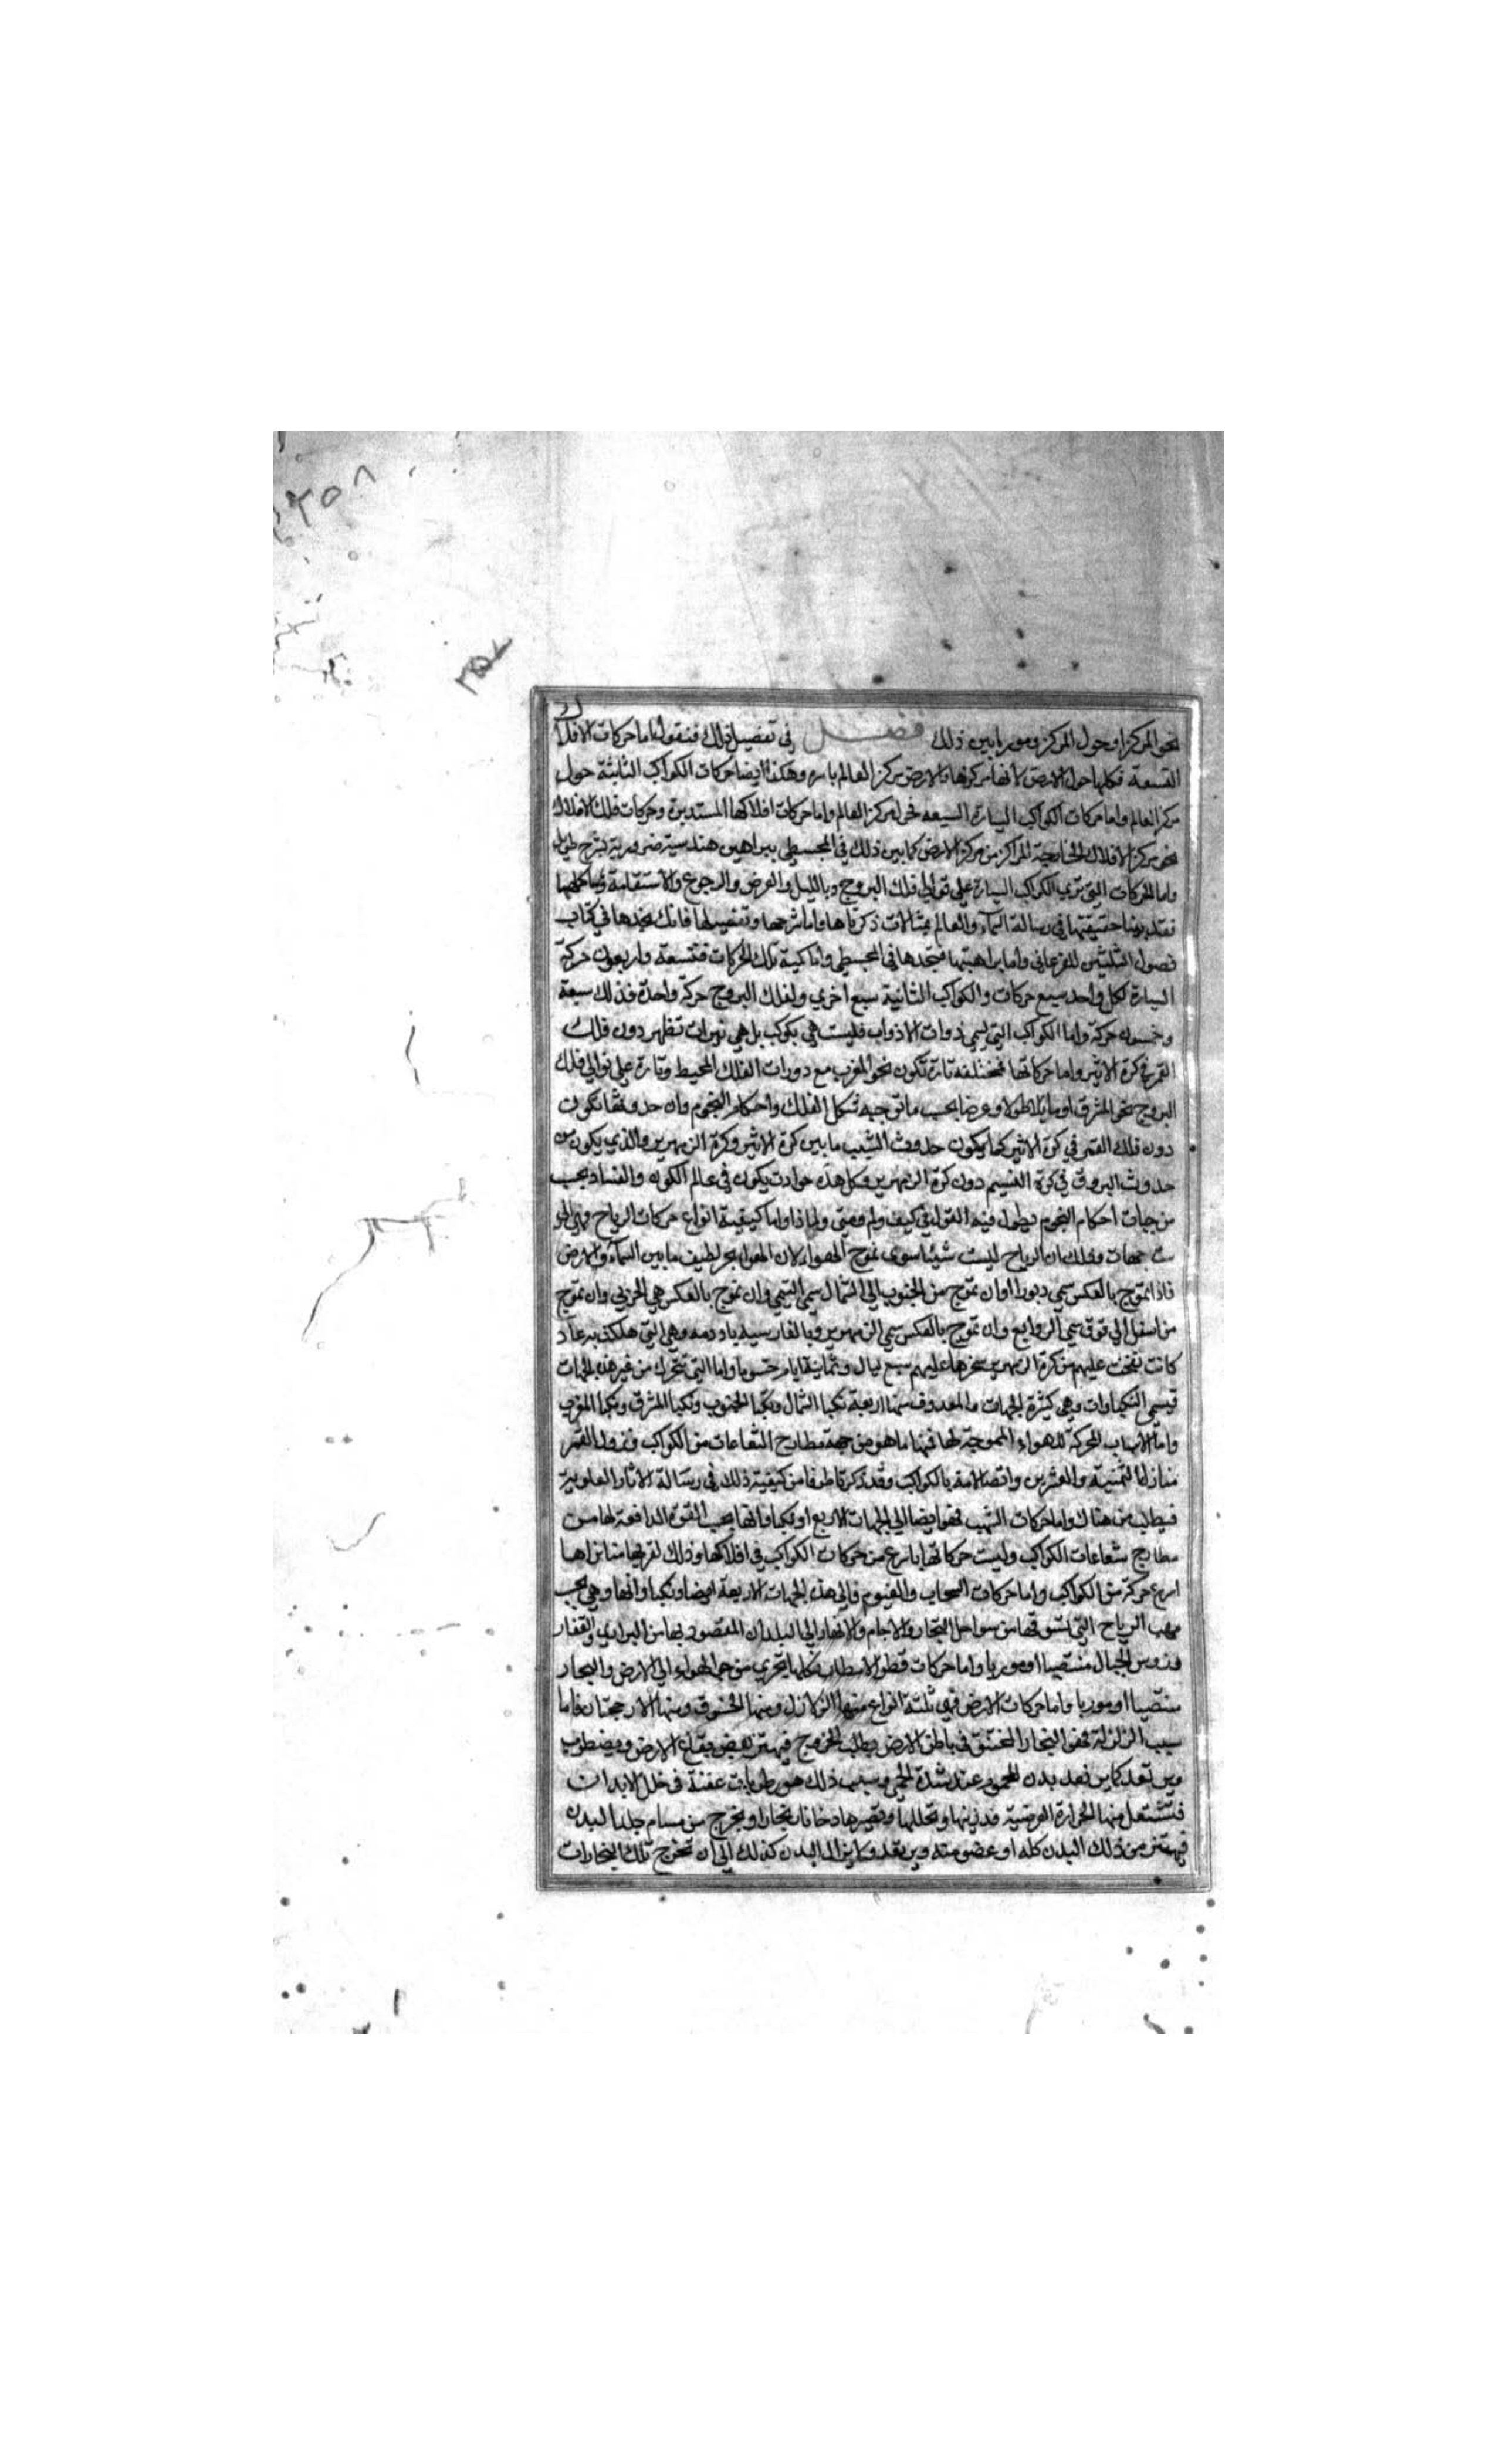 ٢٥٨
٢٥٧
نحو المركز او حول المركز وموربا بين ذلك فصل في تفصيل ذلك فنقول اما حركات الافلاك
التسعة فكلها حول الارض لانها مركزها والارض مركز العالم باسره وهكذا ايضا حركات الكواكب الثابتة حول
مركز العالم واما حركات الكواكب السيارة السبعه فحول مركز العالم واما حركات افلاكها المستديرة وحركات فلك الافلاك
نحو مركز الافلاك الخارجية المراكز من مركز الارض كما بين ذلك في المجسطي ببراهين هندسية ضرورية بشرح طويل
واما الحركات التي تري الكواكب السيارة على توالي فلك البروج وبالليل والعرض والرجوع والاستقامة وما شاكلها
فقد بينا حقيقتها في رسالة السمآء والعالم بمثالات ذكرناها واما شرحها وتفصيلها فانك تجدها في كتاب
فصول الثلثين للفرغاني واما براهينها فتجدها في المجسطي واما كمية تلك الحركات فتسعة واربعون حركة
السيارة لكل واحد سبع حركات والكواكب الثانية سبع اخري ولفلك البروج حركة واحدة فذلك سبعة
وخمسون حركة واما الكواكب التي تسمي ذوات الاذواب فليست هي بكوكب بل هي نيرات تظهر دون فلك
القمر في كرة الاثير واما حركاتها فمختلفه تارة تكون نحو المغرب مع دورات الفلك المحيط وتارة علي توالي فلك
البروج نحو المشرق او مايلا طولا وعرضا بحسب ما توجبه شكل الفلك واحكام النجوم وان حدوثها تكون
دون فلك القمر في كرة الاثير كما يكون حدوث الشهب ما بين كرة الاثير وكرة الزمهرير والذي يكون من
حدوث البروق في كرة النسيم دون كرة الزمهرير وكل هذه حوادث يكون في عالم الكون والفساد بحسب
موجبات احكام النجوم يطول فيه القول في كيف ولم ومتي ولماذا واما كيفية انواع حركات الرياح فهي الي
ست جهات وذلك ان الرياح ليست شيئا سوى تموج الهواء لان الهواء بحر لطيف ما بين السمآء والارض
فاذا تموج بالعكس سمي دبورا وان تموج من الجنوب الي الشمال سمي التيمي وان تموج بالعكس هي الحربي وان تموج
من اسفل الي فوق سمي الزوابع وان تموج بالعكس سمي الزمهرير وبالفارسيه باد دمه وهي التي هلكت به عاد
كانت نفخت عليهم من كرة الزمهرير سخرها عليهم سبع ليال وثمانية ايام حسوما واما التي تتحرك من غير هذه الجهات
فيسمي النكباوات وهي كثيرة الجهات والمعروف منها اربعة نكبا الشمال ونكبا الجنوب ونكبا المشرق ونكبا المغرب
واما الاسباب المحركة للهواء المموجة لها فمنها ما هو من جهة مطارح الشعاعات من الكواكب ونزول القمر
منازلها الثمنية والعشرين واتصالاته بالكواكب وقد ذكرنا طرفا من كيفية ذلك في رسالة الاثار العلوية
فيطلب من هناك واما حركات الشهب فهو ايضا الي الجهات الاربع او نكباواتها بحسب القوة الدافعة لها من
مطارح شعاعات الكواكب وليست حركاتها باسرع من حركات الكواكب في افلاكها وذلك لقربها منا نراها
اسرع حركة من الكواكب واما حركات السحاب والغيوم فالي هذه الجهات الاربعة ايضا ونكباواتها وهي بحسب
مهب الرياح التي تسوقها من سواحل البحار والاجام والانهار الي البلدان المقصود بها من البراري والقفار
ورؤس الجبال منتصبا او موربا واما حركات قطر الامطار فكلها يجري من جو الهواء الي الارض والبحار
منتصبا او موربا واما حركات الارض فهي ثلثة انواع منها الزلازل ومنها الخسوف ومنها الارجحنان فاما
سبب الزلزلة فهو البخار المختنق في باطن الارض يطلب الخروج فيهتز بعض بقاع الارض ويضطرب
ويرتعد كما يرتعد بدن المحموم عند شدة الحمي وسبب ذلك هو رطوبات عفنة في خلل الابدان
فتشتعل منها الحرارة العرضية فتذيبها وتحللها وتصيرها دخانا وبخارا ويخرج من مسام جلد البدن
فيهتز من ذلك البدن كله او عضو منه ويرتعد ولا يزال البدن كذلك الي ان تخرج تلك البخارات